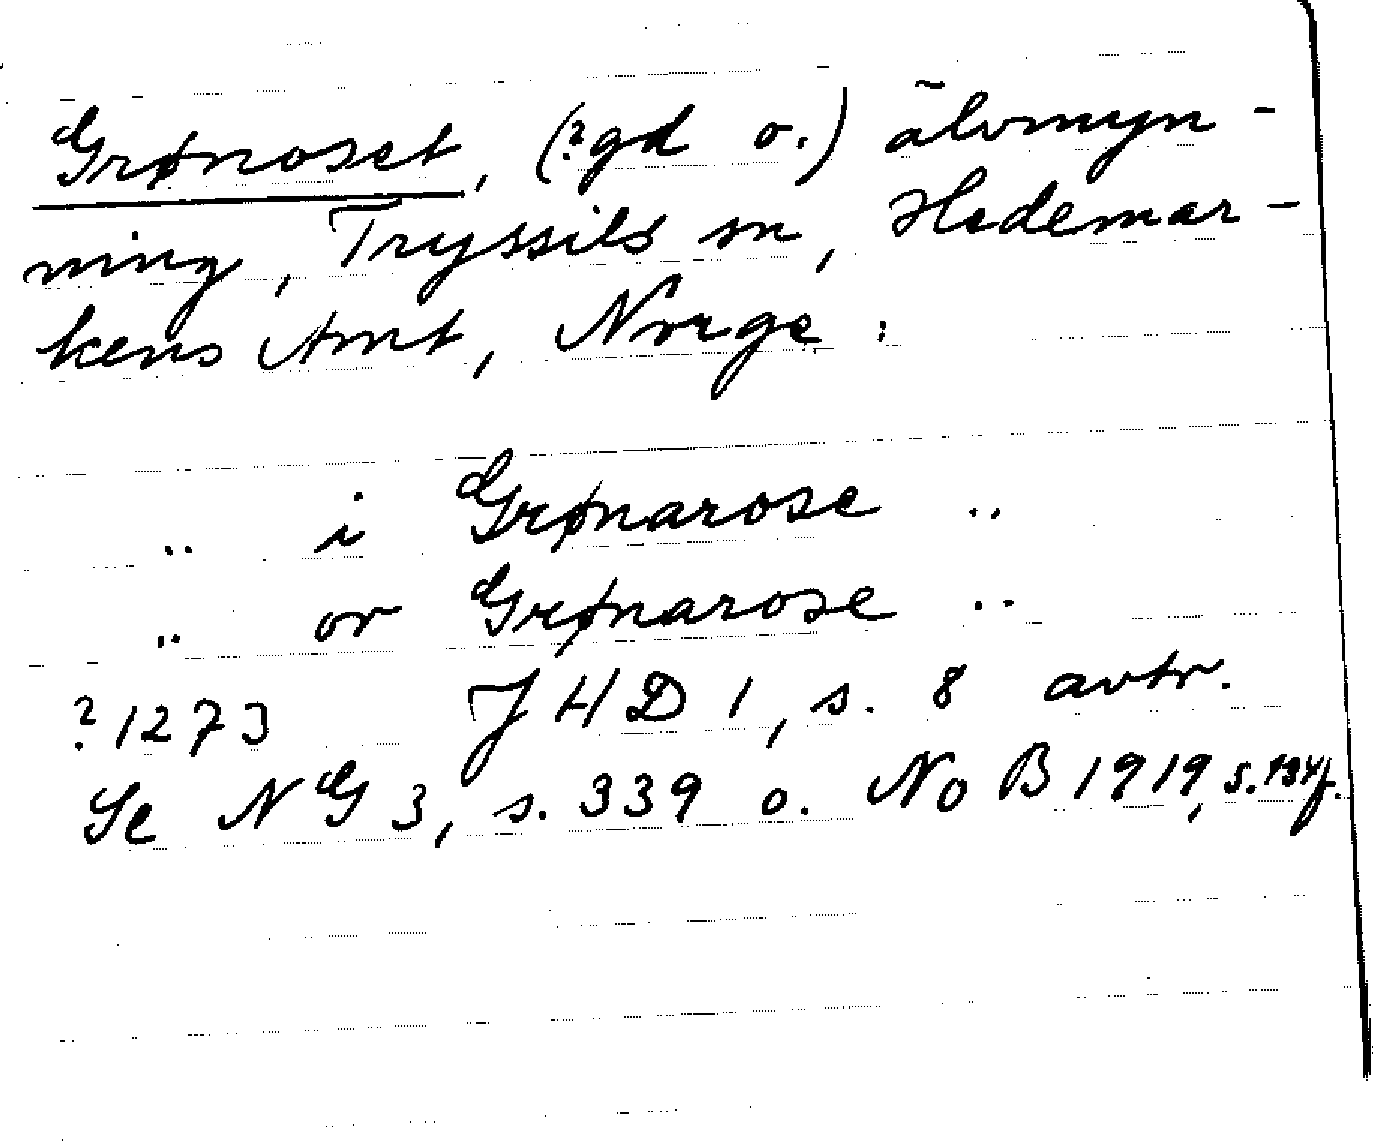 Grønoset, (?gd o.) älvmyn-
ning, Tryssils sn, Hedemar-
kens Amt, Norge:
.. i Grønarose ..
.. or Grønarose ..
?1273 JHD 1, s. 8 avtr.
Se NG 3, s. 339 o. NoB 1919, s. 134f.